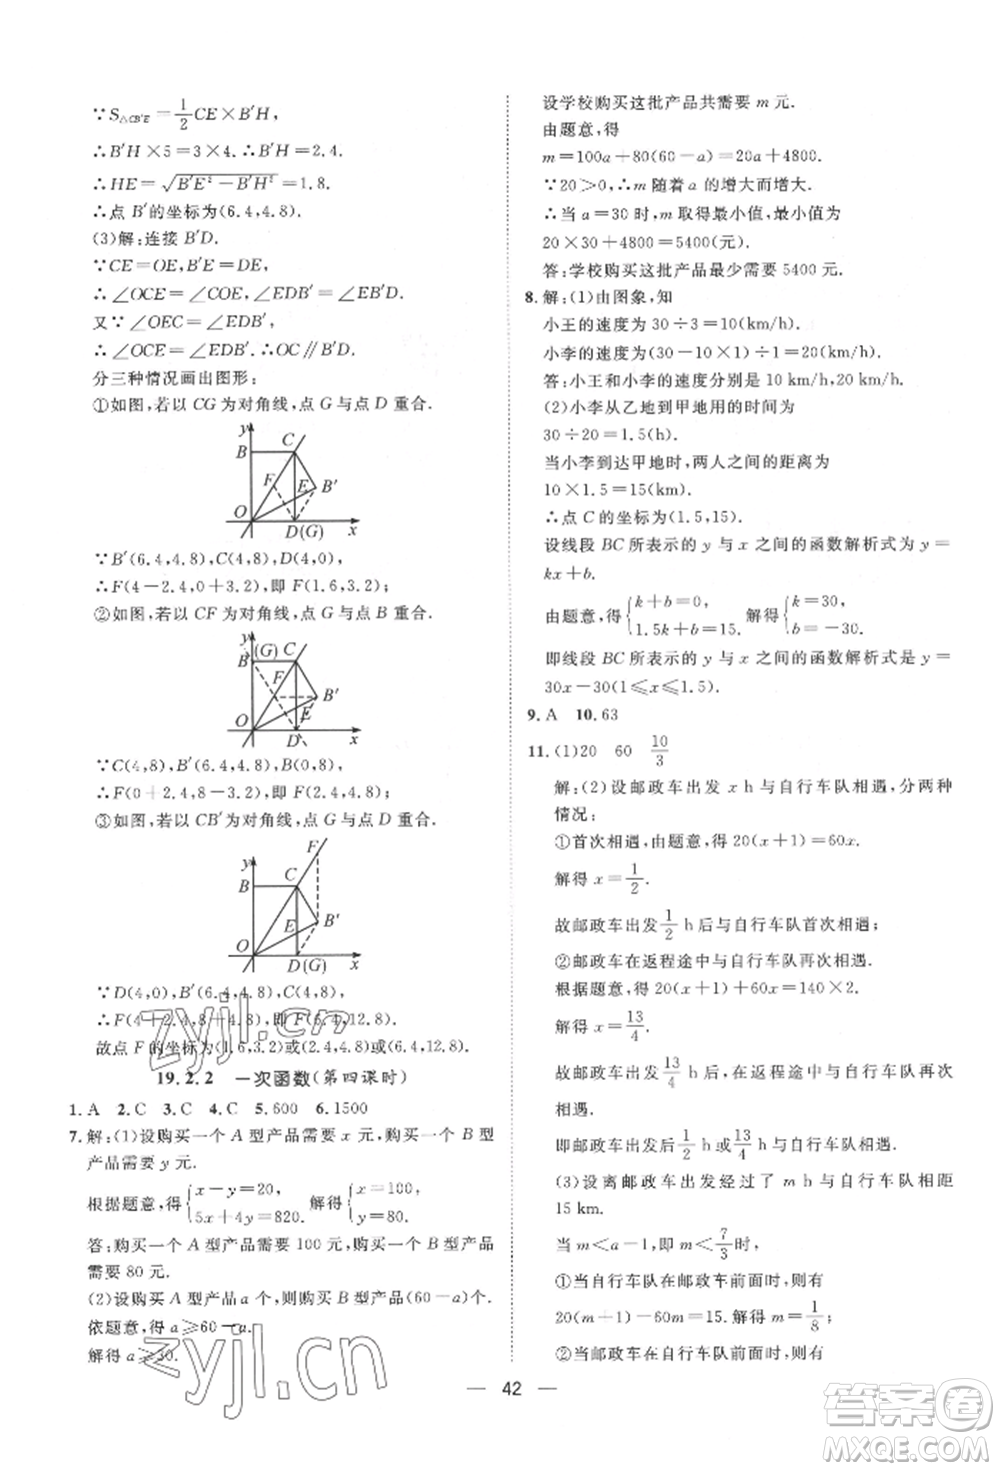 ∵S△CB′E=1/2 CE×B′H,
∴B′H×5=3×4. ∴B′H=2.4.
∴HE=√(B′E²−B′H²)=1.8.
∴点 B′的坐标为(6.4,4.8).
(3)解:连接 B′D.
∵CE=OE,B′E=DE,
∴∠OCE=∠COE,∠EDB′=∠EB′D.
又∵∠OEC=∠EDB′,
∴∠OCE=∠EDB′.∴OC∥B′D.
分三种情况画出图形:
①如图,若以 CG 为对角线,点 G 与点 D 重合.
y
B
C
F
E
B′
O
D(G)
x
∵B′(6.4,4.8),C(4,8),D(4,0),
∴F(4−2.4,0+3.2),即 F(1.6,3.2).
②如图,若以 CF 为对角线,点 G 与点 B 重合.
y
B
(G)
C
F
B′
E
O
D
x
∵C(4,8),B′(6.4,4.8),B(0,8),
∴F(0+2.4,8−3.2),即 F(2.4,4.8).
③如图,若以 CB′为对角线,点 G 与点 D 重合.
F
y
B
C
E
B′
O
D(G)
x
∵D(4,0),B′(6.4,4.8),C(4,8),
∴F(4+2.4,8+4.8),即 F(6.4,12.8).
故点 F 的坐标为(1.6,3.2)或(2.4,4.8)或(6.4,12.8).
19.2.2 一次函数(第四课时)
1.A 2.C 3.C 4.C 5.600 6.1500
7.解:(1)设购买一个 A 型产品需要 x 元,购买一个 B 型
产品需要 y 元.
根据题意,得{x−y=20, 5x+4y=820. 解得{x=100, y=80.
答:购买一个 A 型产品需要 100 元,购买一个 B 型产品
需要 80 元.
(2)设购买 A 型产品 a 个,则购买 B 型产品(60−a)个.
依题意,得 a≥60−a.
解得 a≥30.
设学校购买这批产品共需要 m 元.
由题意,得
m=100a+80(60−a)=20a+4800.
∵20>0,∴m 随着 a 的增大而增大.
∴当 a=30 时,m 取得最小值,最小值为
20×30+4800=5400(元).
答:学校购买这批产品最少需要 5400 元.
8.解:(1)由图象,知
小王的速度为 30÷3=10(km/h),
小李的速度为(30−10×1)÷1=20(km/h).
答:小王和小李的速度分别是 10 km/h,20 km/h.
(2)小李从乙地到甲地用的时间为
30÷20=1.5(h).
当小李到达甲地时,两人之间的距离为
10×1.5=15(km).
∴点 C 的坐标为(1.5,15).
设线段 BC 所表示的 y 与 x 之间的函数解析式为 y=
kx+b.
由题意,得{k+b=0, 1.5k+b=15. 解得{k=30, b=−30.
即线段 BC 所表示的 y 与 x 之间的函数解析式为 y=
30x−30(1≤x≤1.5).
9.A 10.63
11.(1)20 60 10/3
解:(2)设邮政车出发 x h 与自行车队相遇,分两种
情况:
①首次相遇,由题意,得 20(x+1)=60x.
解得 x=1/2.
故邮政车出发 1/2 h 后与自行车队首次相遇;
②邮政车在返程途中与自行车队再次相遇.
根据题意,得 20(x+1)+60x=140×2.
解得 x=13/4.
故邮政车出发 13/4 h 后,在返程途中与自行车队再次
相遇.
即邮政车出发后 1/2 h 或 13/4 h 与自行车队相遇.
(3)设离邮政车出发经过了 m h 与自行车队相距
15 km.
当 m<a−1,即 m<7/3 时,
①当自行车队在邮政车前面时,则有
20(m+1)−60m=15. 解得 m=1/8;
②当邮政车在自行车队前面时,则有
— 42 —
zyjl.cn
zyjl.cn
答案圈
MXQE.COM